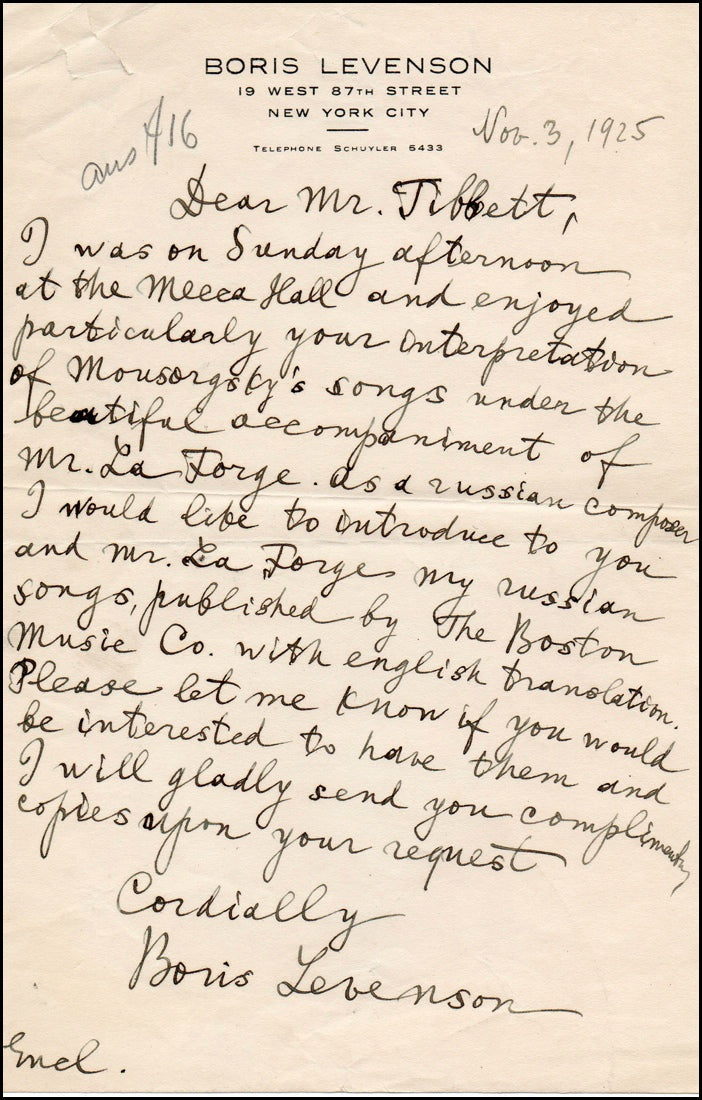 BORIS LEVENSON
19 WEST 87TH STREET
NEW YORK CITY
TELEPHONE SCHUYLER 5433
Nov. 3, 1925
ans 4/16
Dear Mr. Tibbett,
I was on Sunday afternoon
at the Mecca Hall and enjoyed
particularly your interpretation
of Mousorgsky's songs under the
beatiful accompaniment of
Mr. La Forge. As a russian composer
I would like to introduce to you
and Mr. La Forge my russian
songs, published by The Boston
Music Co. with english translation.
Please let me know if you would
be interested to have them and
I will gladly send you complimentary
copies upon your request
Cordially
Boris Levenson
Encl.